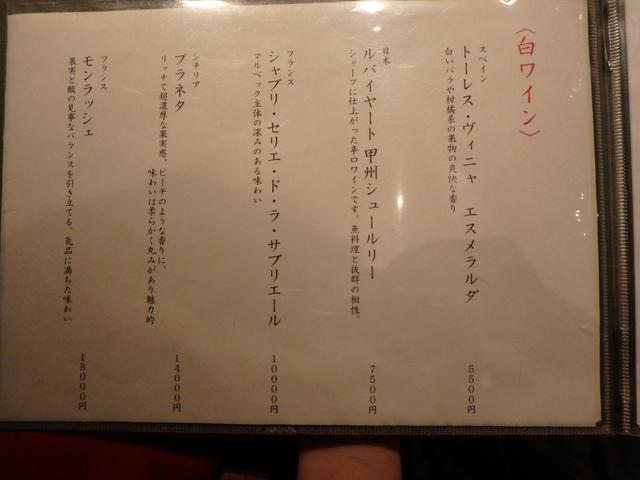 〈白ワイン〉
スペイン
トーレス・ヴィニャ　エスメラルダ
白いバラや柑橘系の果物の爽快な香り
5500円
日本
ルバイヤート 甲州シュールリー
シャープに仕上がった辛口ワインです。魚料理と抜群の相性。
7500円
フランス
シャブリ・セリエ・ド・ラ・サブリエール
マルベック主体の深みのある味わい
10000円
シチリア
プラネタ
リッチで超濃厚な果実感、ピーチのような香りに、
味わいは柔らかく丸みがあり魅力的
14000円
フランス
モンラッシェ
果実と酸の見事なバランスを引き立てる、気品に満ちた味わい
18000円